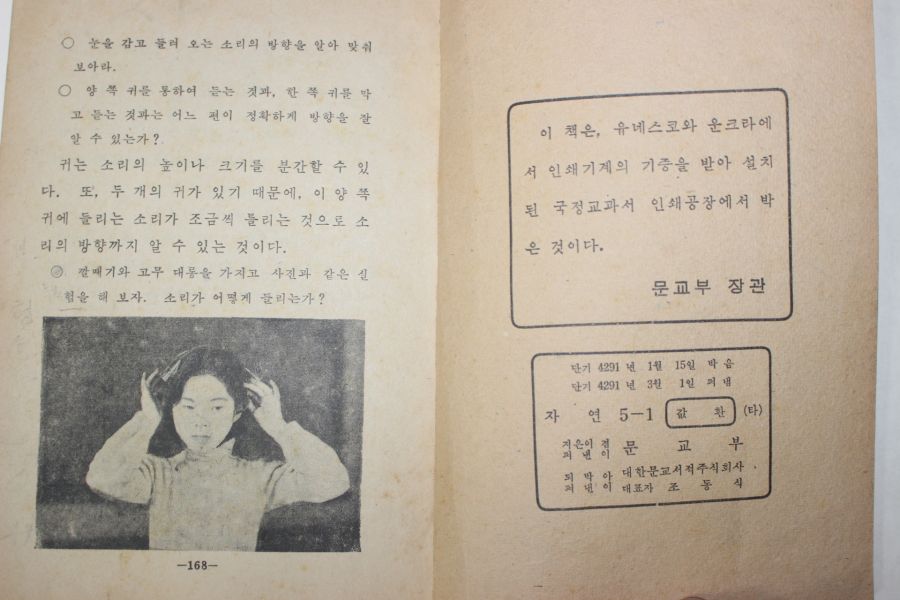 ○ 눈을 감고 들려 오는 소리의 방향을 알아 맞춰
보아라.
○ 양 쪽 귀를 통하여 듣는 것과, 한 쪽 귀를 막
고 듣는 것과는 어느 편이 정확하게 방향을 잘
알 수 있는가?
귀는 소리의 높이나 크기를 분간할 수 있
다. 또, 두 개의 귀가 있기 때문에, 이 양 쪽
귀에 들리는 소리가 조금씩 틀리는 것으로 소
리의 방향까지 알 수 있는 것이다.
◎ 깔때기와 고무 대롱을 가지고 사진과 같은 실
험을 해 보자. 소리가 어떻게 들리는가?
—168—
이 책은, 유네스코와 운크라에
서 인쇄기계의 기증을 받아 설치
된 국정교과서 인쇄공장에서 박
은 것이다.
문교부 장관
단기 4291 년 1월 15일 박음
단기 4291 년 3월 1일 펴냄
자 연 5—1 값 환 (타)
지은이 겸
펴낸이 문 교 부
되박아
펴낸이 대한문교서적주식회사
대표자 조 동 식